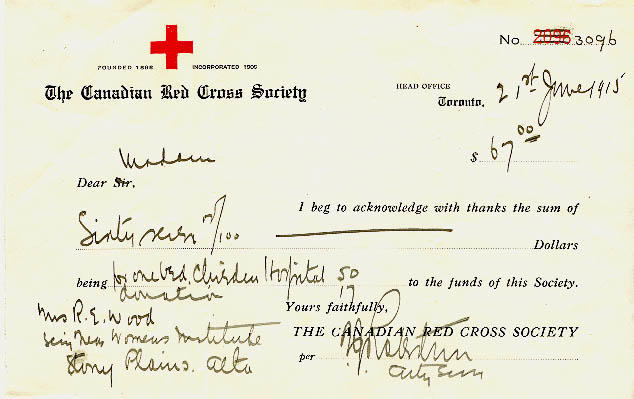 No. 2096 3096
FOUNDED 1896 INCORPORATED 1909
The Canadian Red Cross Society
HEAD OFFICE
Toronto, 21st June 1915
$ 67.00
Madam
Dear Sir,
I beg to acknowledge with thanks the sum of
Sixty seven /100 Dollars
being for one bed. Cliveden Hospital 50 to the funds of this Society.
donation 17
Yours faithfully,
Mrs R. E. Wood
THE CANADIAN RED CROSS SOCIETY
Secy Treas Womens Institute
per
Stony Plains. Alta